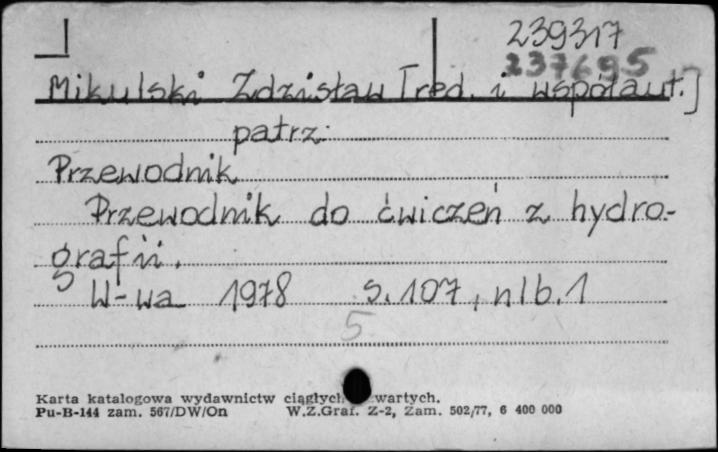 239317
237695
Mikulski Zdzisław [red. i współaut.]
patrz:
Przewodnik
Przewodnik do ćwiczeń z hydro-
grafii.
W-wa 1978 s. 107, nlb. 1
5
Karta katalogowa wydawnictw ciągłych wartych.
Pu-B-144 zam. 567/DW/On W.Z.Graf. Z-2, Zam. 502/77, 6 400 000